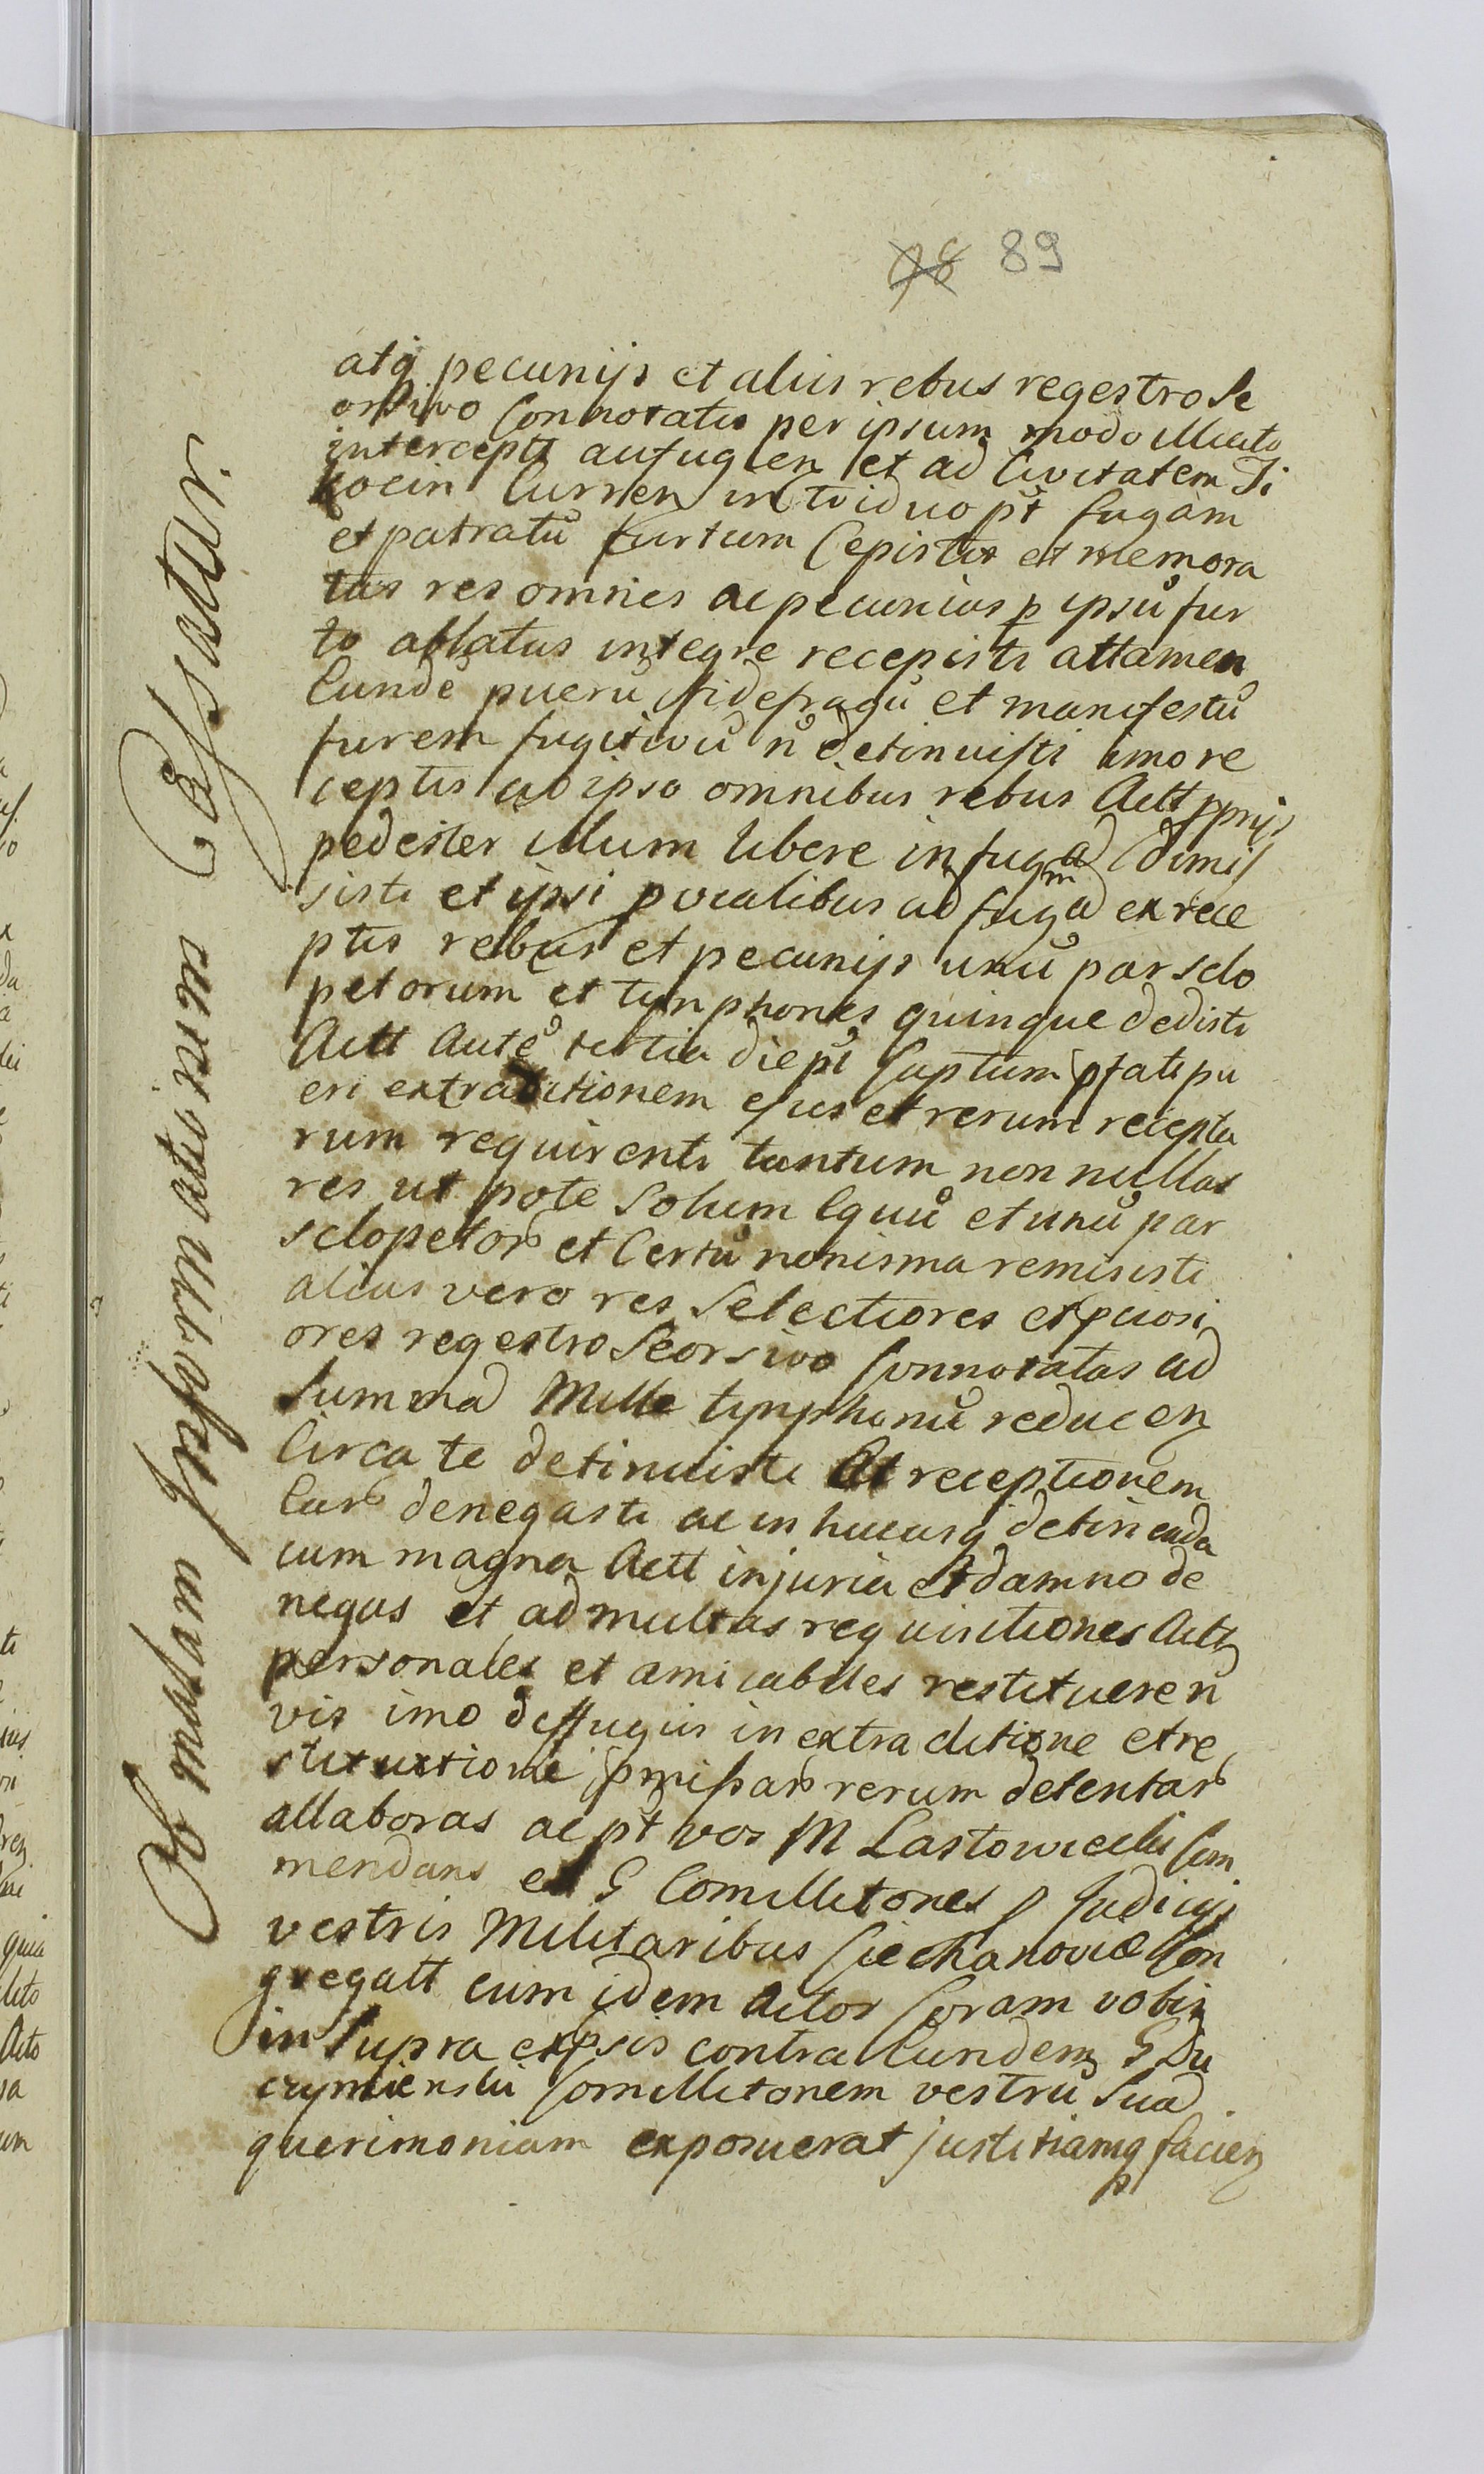 98 89
atq pecunijs et aliis rebus regestro Se
orsivo Connotatis per ipsum modo illicito
interceptt aufugien et ad Civitatem Ti
kocin Curren in triduo pt fugam
et patratũ furtum Cepistis et memora
tas res omnes ac pecunias p ipsũ fur
to ablatas integre recepisti attamen
Eundẽ puerũ fidefragũ et manifestũ
furem fugitivũ ñ detinuisti imo re
ceptis ab ipso omnibus rebus Actt pprijs
pedester illum libere in fugam dimis
sisti et ipsi p vialibus ad fugam ex rece
ptis rebus et pecunijs unũ par sclo
petorum et tynphones quinque dedisti
Actt Autẽ tertia die pt Captum pfati pu
eri extraditionem ejus et rerum recepta
rum requirenti tantum non nullas
res ut pote Solum Equũ et unũ par
sclopetor et Certũ nomisma remisisti
alias vero res Selectiores et pciosi
ores regestro Seorsivo Connotatas ad
Summa Mille tynphonũ reducen
Circa te detinuisti Et receptionem
Ear denegasti ac in hucusq detinenda
cum magna Actt injuria et damno de
negas et ad multas requisitiones Actt
personales et amicabiles restituere ñ
vis imo deffugiis in extraditione et re
stitutione pmissar rerum detentar
allaboras ac pt vos M Lastowiecki Com
mendans et G Comilitones p Judicijs
vestris Militaribus Ciechanoviae Con
gregatt cum idem Actor Coram vobis
in Supra expssis contra Eundem G Du
czyminski Comilitonem vestrũ Sua
querimoniam exposuerat justitiamq facien
Ob instam Informationem Cassatur.